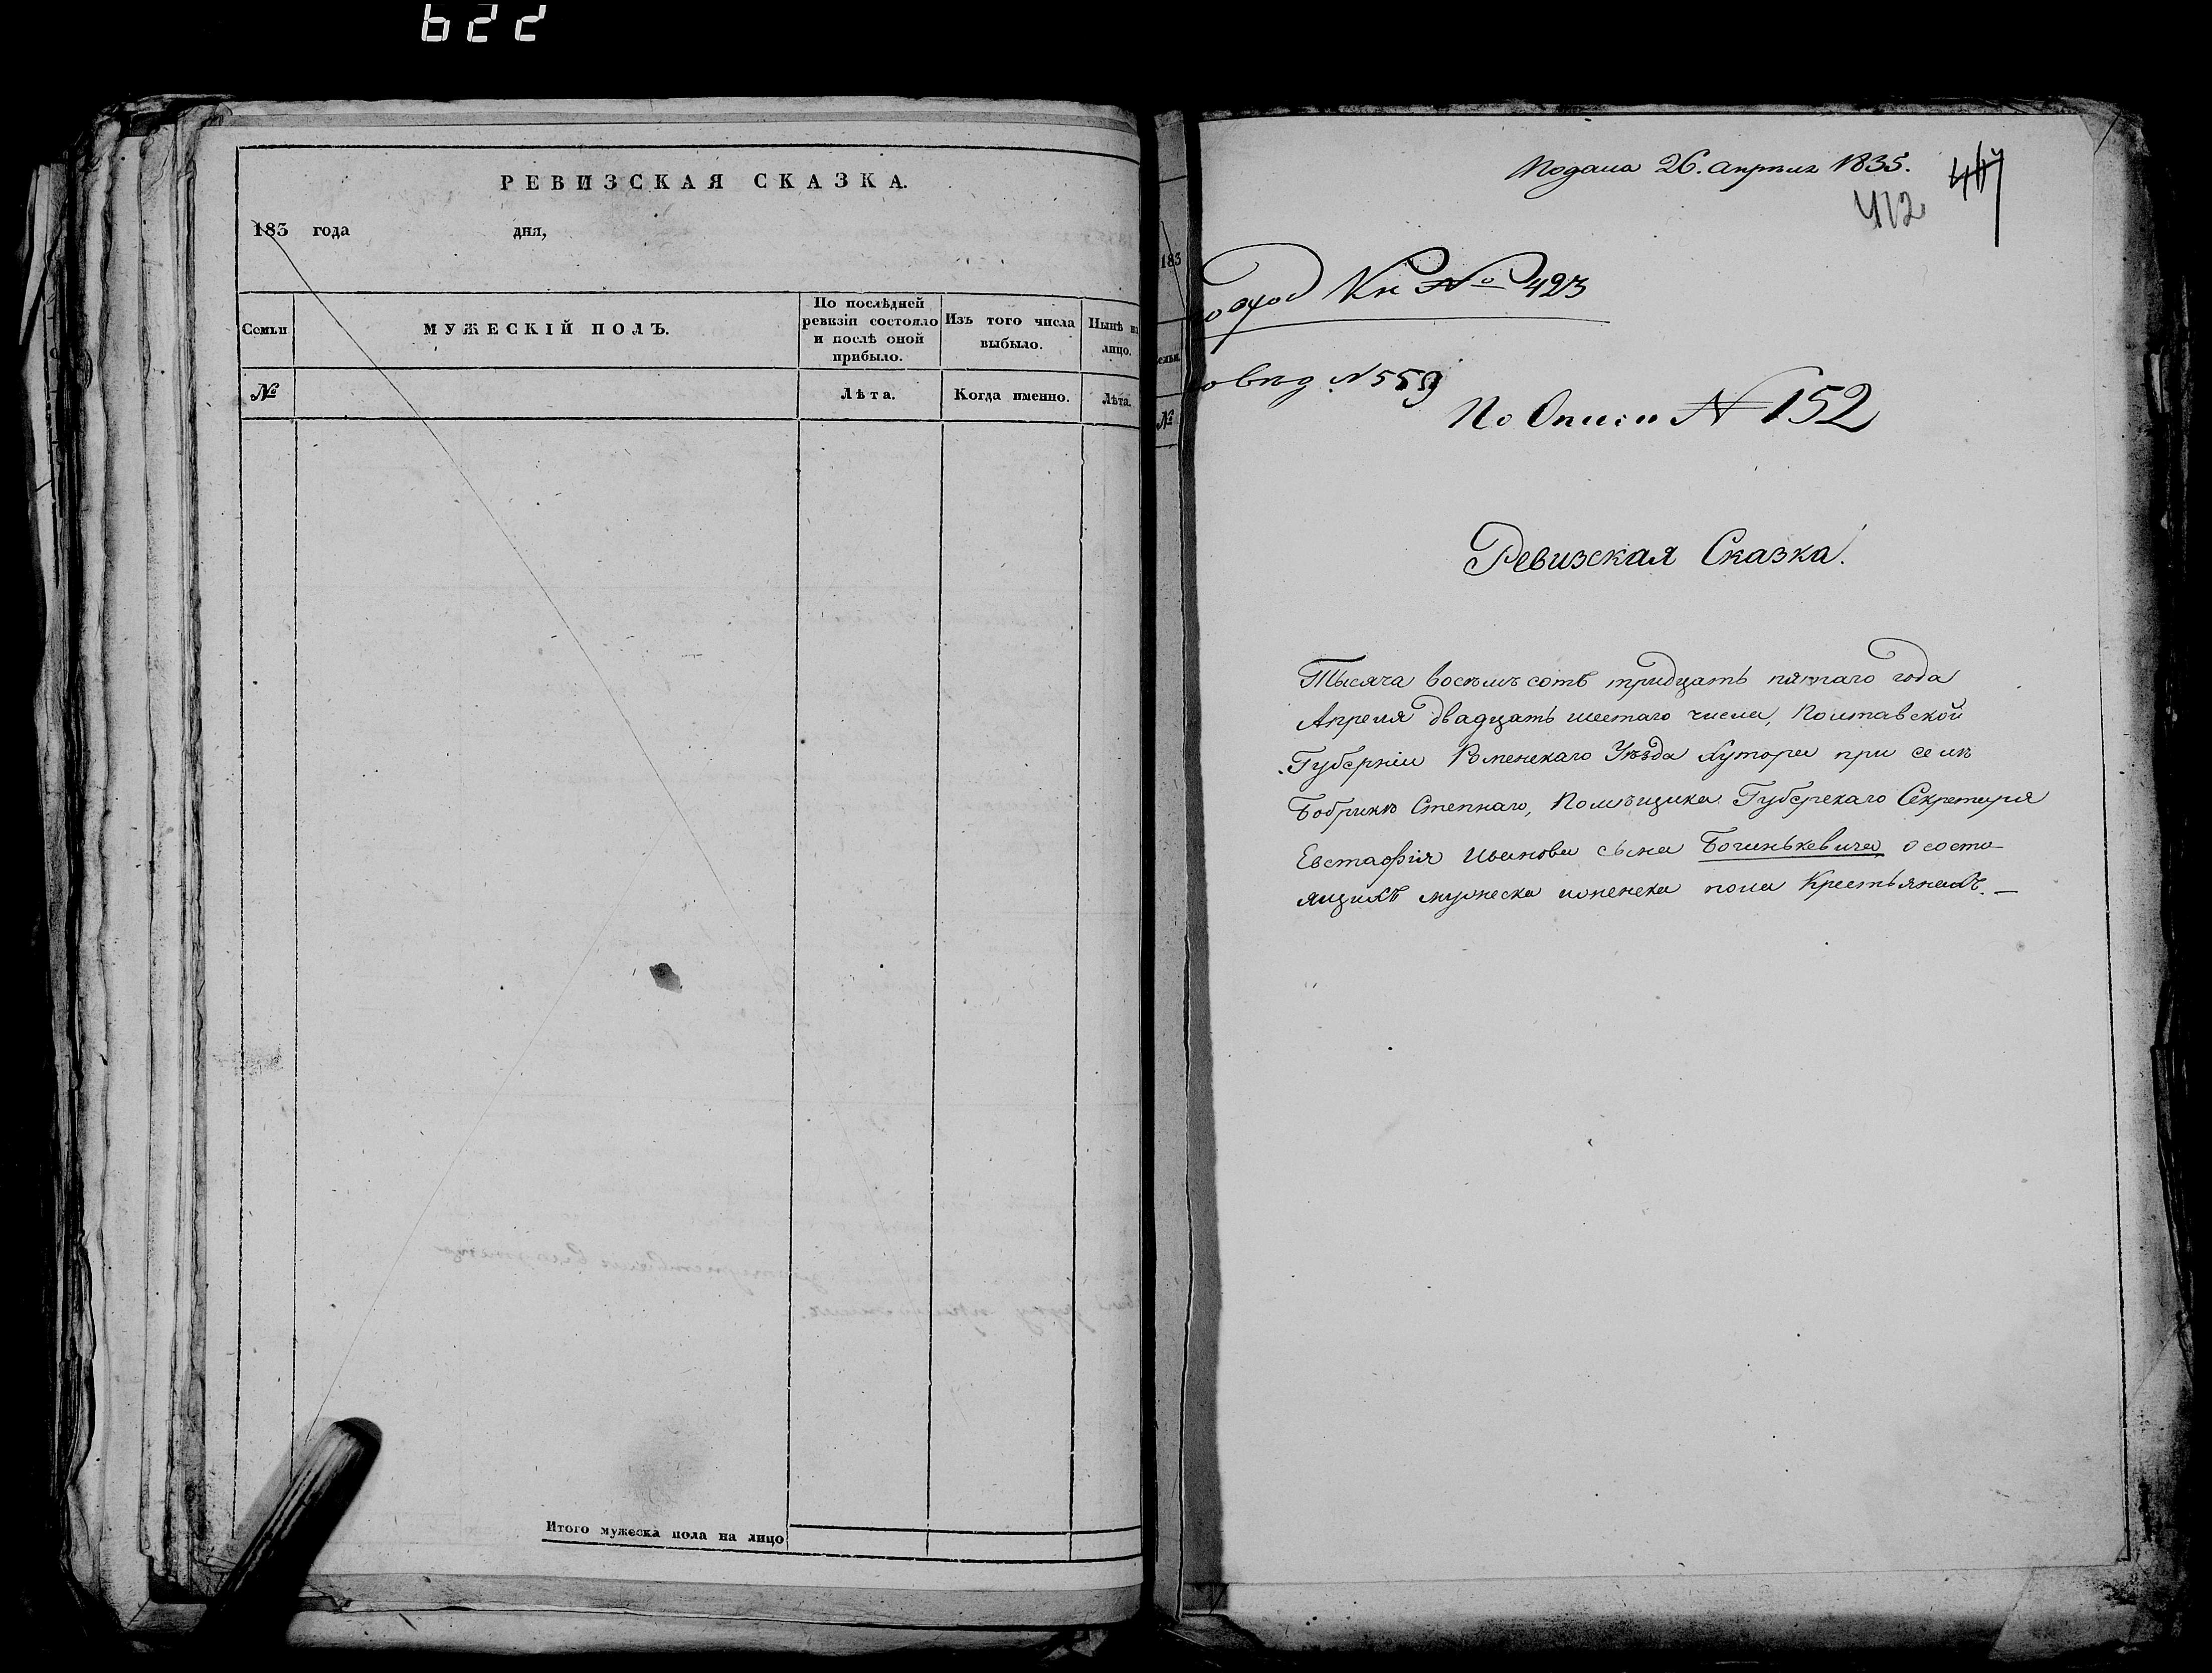 622
РЕВИЗСКАЯ СКАЗКА.
183 года дня,
Семьи
МУЖЕСКІЙ ПОЛЪ.
По послѣдней ревизіи состояло и послѣ оной прибыло.
Изъ того числа выбыло.
Нынѣ на лицо.
№
Лѣта.
Когда именно.
Лѣта.
Итого мужеска пола на лицо
183
№
Подана 26. апрѣля 1835.
412
Кн № 423
№ 559
По Описи № 152
Ревизская Сказка.
Тысяча восемъ сотъ тридцать пятаго года
Апреля двадцать шестаго числа, Полтавской
Губерніи Роменскаго Уѣзда Хутора при селѣ
Бобрикѣ Степнаго, Помѣщика Губерскаго Секретаря
Евстафія Иванова сына Богинькевича о состо-
ящихъ мужеска иженска пола Крестьянахъ. —